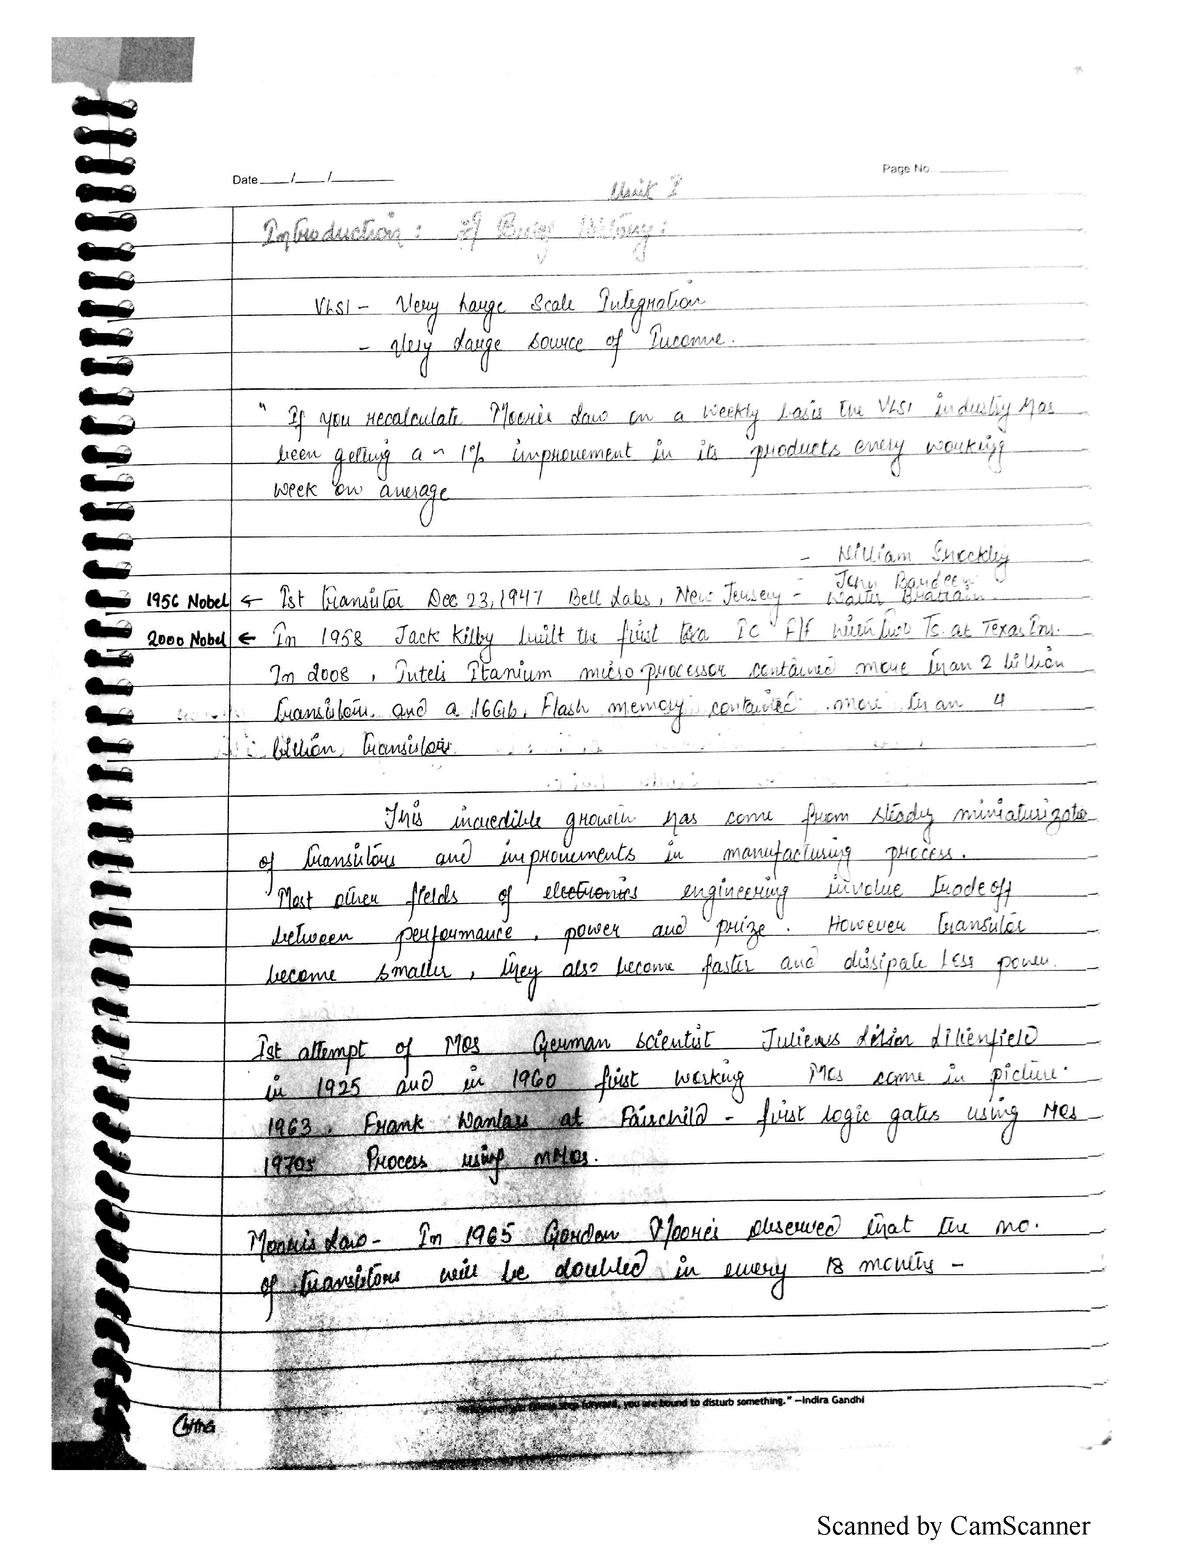 Date ___/___/______
Page No. ________
Unit I
Introduction: A Brief History:
VLSI - Very Large Scale Integration
- Very Large source of Income.
" If you recalculate Moore's Law on a weekly basis the VLSI industry has
been getting a ~ 1% improvement in its products every working
week on average
- William Shockley
- John Bardeen
1956 Nobel ← Ist transistor Dec 23, 1947 Bell Labs, New Jersey - Walter Brattain.
2000 Nobel ← In 1958 Jack Kilby built the first IC F/F with two Ts. at Texas Ins.
In 2008, Intel's Itanium microprocessor contained more than 2 billion
transistors and a 16Gb, Flash memory contained more than 4
billion transistors.
This incredible growth has come from steady miniaturizatio
of transistors and improvements in manufacturing process.
Most other fields of electronics engineering involve tradeoff
between performance, power and prize. However transistor
become smaller, they also become faster and dissipate less power.
Ist attempt of MOS German scientist Julienus Lilienfield
in 1925 and in 1960 first working MOS come in picture.
1963. Frank Wanlass at Fairchild - first logic gates using MOS
1970s Process using nMOS.
Moore's Law - In 1965 Gordon Moore's observed that the no.
of transistors will be doubled in every 18 months -
step forward, you are bound to disturb something." –Indira Gandhi
Scanned by CamScanner